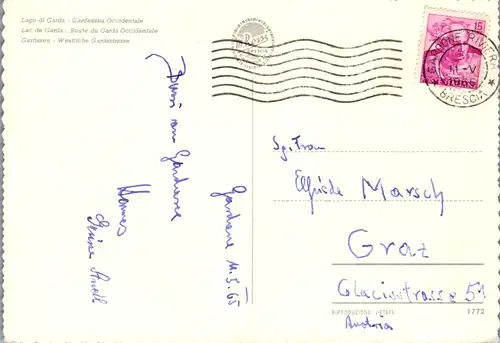 Lago di Garda - Gardesana Occidentale
Lac de Garda - Route du Garda Occidentale
Gardasee - Westliche Gardastrasse
15
GARDONE RIVIERA
11-V
BRESCIA
Gardone 11.5.65
Hannes
Sg. Frau
Elfriede Marsch
Graz
Glacisstrasse 51
Austria
RIPRODUZIONE VIETATA
1772